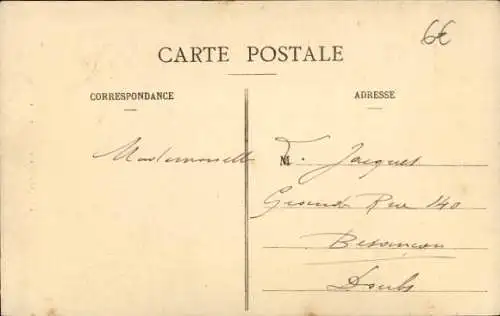 6€
CARTE POSTALE
CORRESPONDANCE
ADRESSE
Mademoiselle M. Jacques
Grande Rue 140
Besançon
Doubs